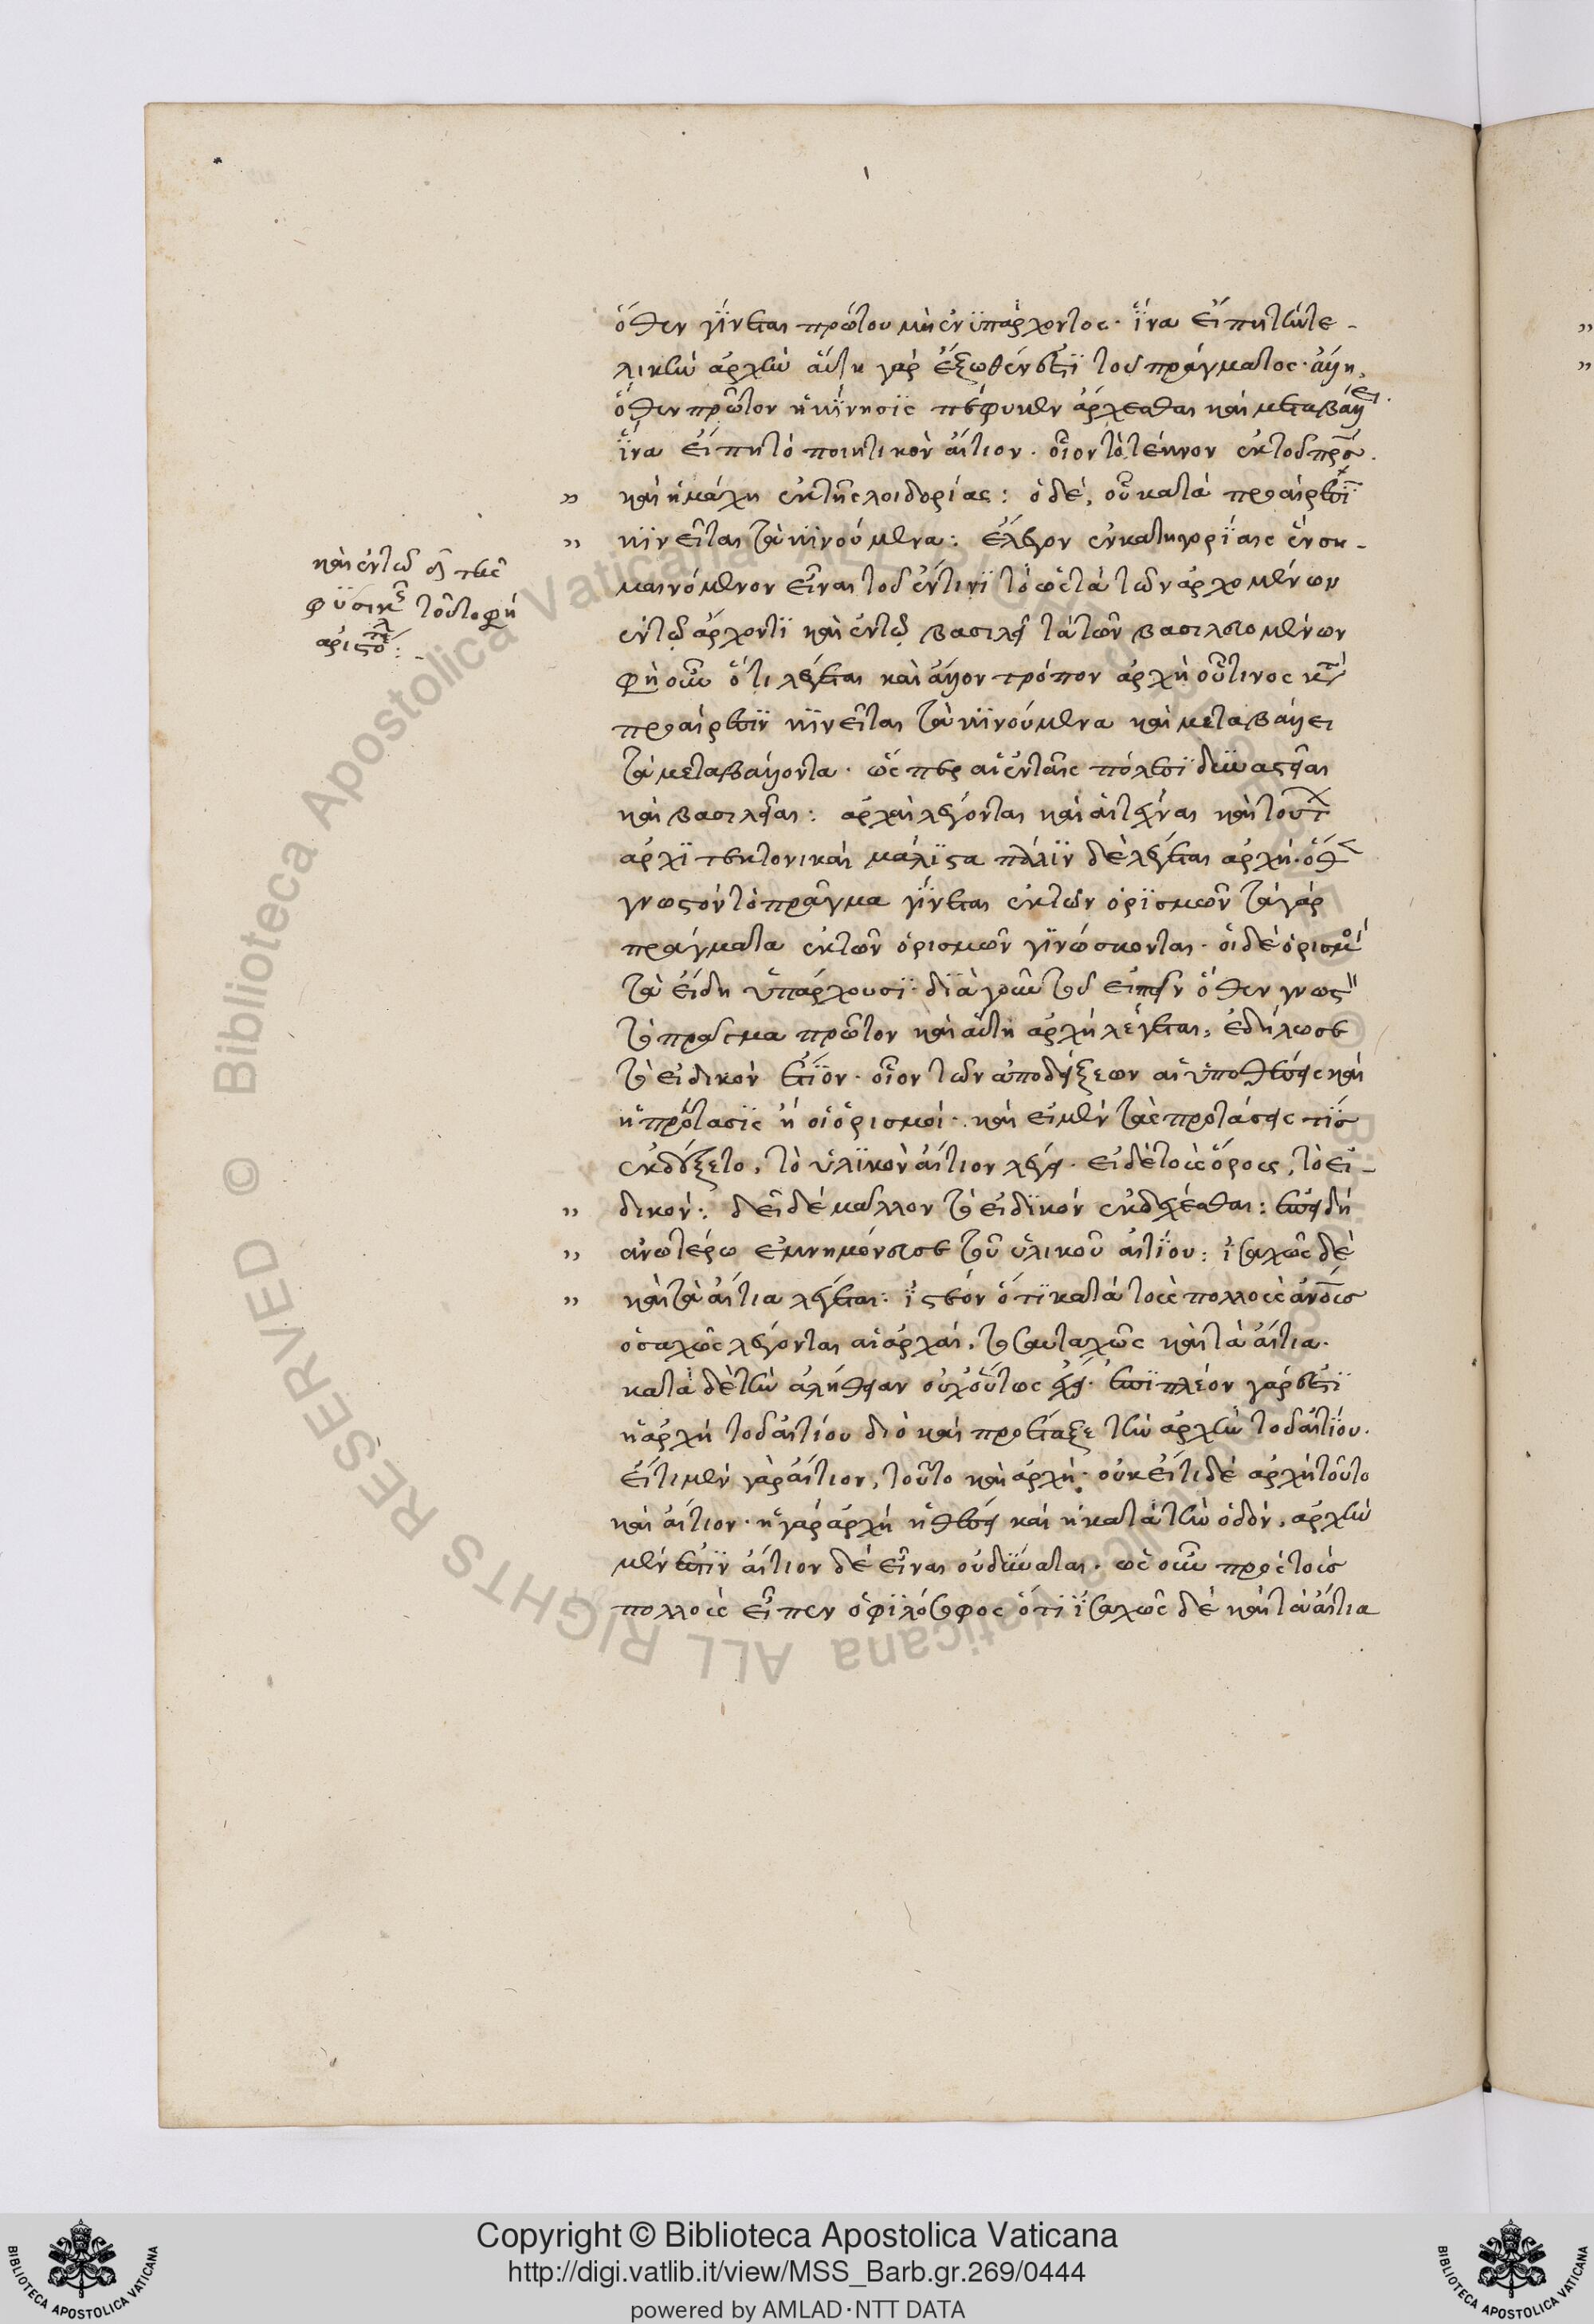 ὅθεν γίνεται πρώτου μὴ ἐνϋπάρχοντος· ἵνα εἴπῃ τὴν τε-
λικὴν ἀρχὴν αὕτη γάρ ἔξωθέν ἐστϊ τοῦ πράγματος· ἀλλ' ἡ
ὅθεν πρῶτον ἡ κίνησϊς πέφυκεν ἄρχεσθαι καὶ μεταβάλλει·
ἵνα εἴπη τὸ ποιητικὸν αἴτιον· οἷον τὸ τέκνον ἐκ τοῦ πρσ·
" καὶ ἡ μάχη ἐκ τῆς λοιδορίας: ὁ δέ, οὗ κατὰ προαίρεσϊ
" κϊνεῖται τὰ κϊνούμενα: ἔλεγον ἐν κατηγορίαις ἓν ση-
μαινόμενον εἶναι τοῦ ἔν τινϊ τὸ ὡς τὰ τῶν ἀρχομένων
ἐν τῷ ἄρχοντϊ καὶ ἐν τῷ βασιλεῖ τὰ τῶν βασιλευομένων
φὴ οὖν ὅτι λέγεται καὶ ἄλλον τρόπον ἀρχὴ οὗτινος κτ
προαίρεσϊν κϊνεῖται τὰ κϊνούμενα καὶ μεταβάλλει
τὰ μεταβάλλοντα· ὥσπερ αἱ ἐν ταῖς πόλεσϊ δυναστεῖαι
καὶ βασιλεῖαι: ἀρχαὶ λέγονται καὶ αἱ τέχναι καὶ τουτ
ἀρχϊτεκτονικαὶ μάλϊστα πάλϊν δὲ λέγεται ἀρχὴ· ὅθ
γνωστόν τὸ πρᾶγμα γίνεται ἐκ τῶν ὁρϊσμῶν τὰ γάρ
πράγματα ἐκ τῶν ὁρισμῶν γϊνώσκονται· οἱ δὲ ὁρισμοί
τὰ εἴδη ὑπάρχουσϊ· δϊὰ γοῦν τοῦ εἰπεῖν ὅθεν γνωστ
τὸ πρᾶγμα πρῶτον καὶ αὕτη ἀρχὴ λέγεται, ἐδήλωσε
τὸ εἰδικὸν αἴτϊον· οἷον τῶν ἀποδείξεων αἱ ὑποθέσεις καὶ
ἡ πρότασϊς ἢ οἱ ὁρισμοί· καὶ εἰ μὲν τὰς προτάσεις τϊσ
ἐκδέξετο, τὸ ὑλϊκὸν αἴτιον λέγει· εἰ δὲ τοὺς ὅρους, τὸ εἰ-
" δικόν: δεῖ δὲ μᾶλλον τὸ εἰδϊκόν ἐκδέχεσθαι: ἐπειδὴ
" ἀνωτέρω ἐμνημόνευσε τοῦ ὑλικοῦ αἰτϊου: ἰσαχῶς δὲ
" καὶ τὰ αἴτια λέγεται: ἰστέον ὅτϊ κατὰ τοὺς πολλοὺς ἀνουσ
ὁσαχῶς λέγονται αἱ ἀρχαὶ, τοσαυταχῶς καὶ τὰ αἴτια·
κατὰ δὲ τὴν ἀλήθειαν οὐχ οὕτως ἔχει· ἐπϊ πλέον γάρ ἐστϊ
ἡ ἀρχὴ τοῦ αἰτίου διὸ καὶ προέταξε τὴν ἀρχὴν τοῦ αἰτϊου·
εἴ τι μὲν γὰρ αἴτιον, τοῦτο καὶ ἀρχὴ· οὐκ εἴ τι δὲ ἀρχὴ τοῦτο
καὶ αἴτιον· ἡ γὰρ ἀρχὴ ἡ θέσει καὶ ἡ κατὰ τὴν ὁδόν, ἀρχὴν
μέν ἐστϊν αἴτιον δὲ εἶναι οὐ δύναται· ὡς οὖν πρὸς τοὺσ
πολλοὺς εἶπεν ὁ φϊλόσοφος ὅτϊ ἰσαχῶς δὲ καὶ τὰ αἴτια
καὶ ἐν τῷ
φϋσικ τοῦτο φη
ἀριστο:
© Biblioteca Apostolica Vaticana ALL RIGHTS RESERVED
Copyright © Biblioteca Apostolica Vaticana
http://digi.vatlib.it/view/MSS_Barb.gr.269/0444
powered by AMLAD·NTT DATA
BIBLIOTECA APOSTOLICA VATICANA
BIBLIOTECA APOSTOLICA VATICANA